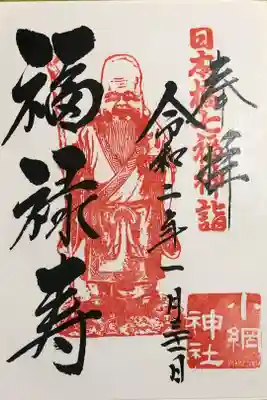 奉拝
日本橋七福神詣
令和二年一月
福禄寿
小網
神社